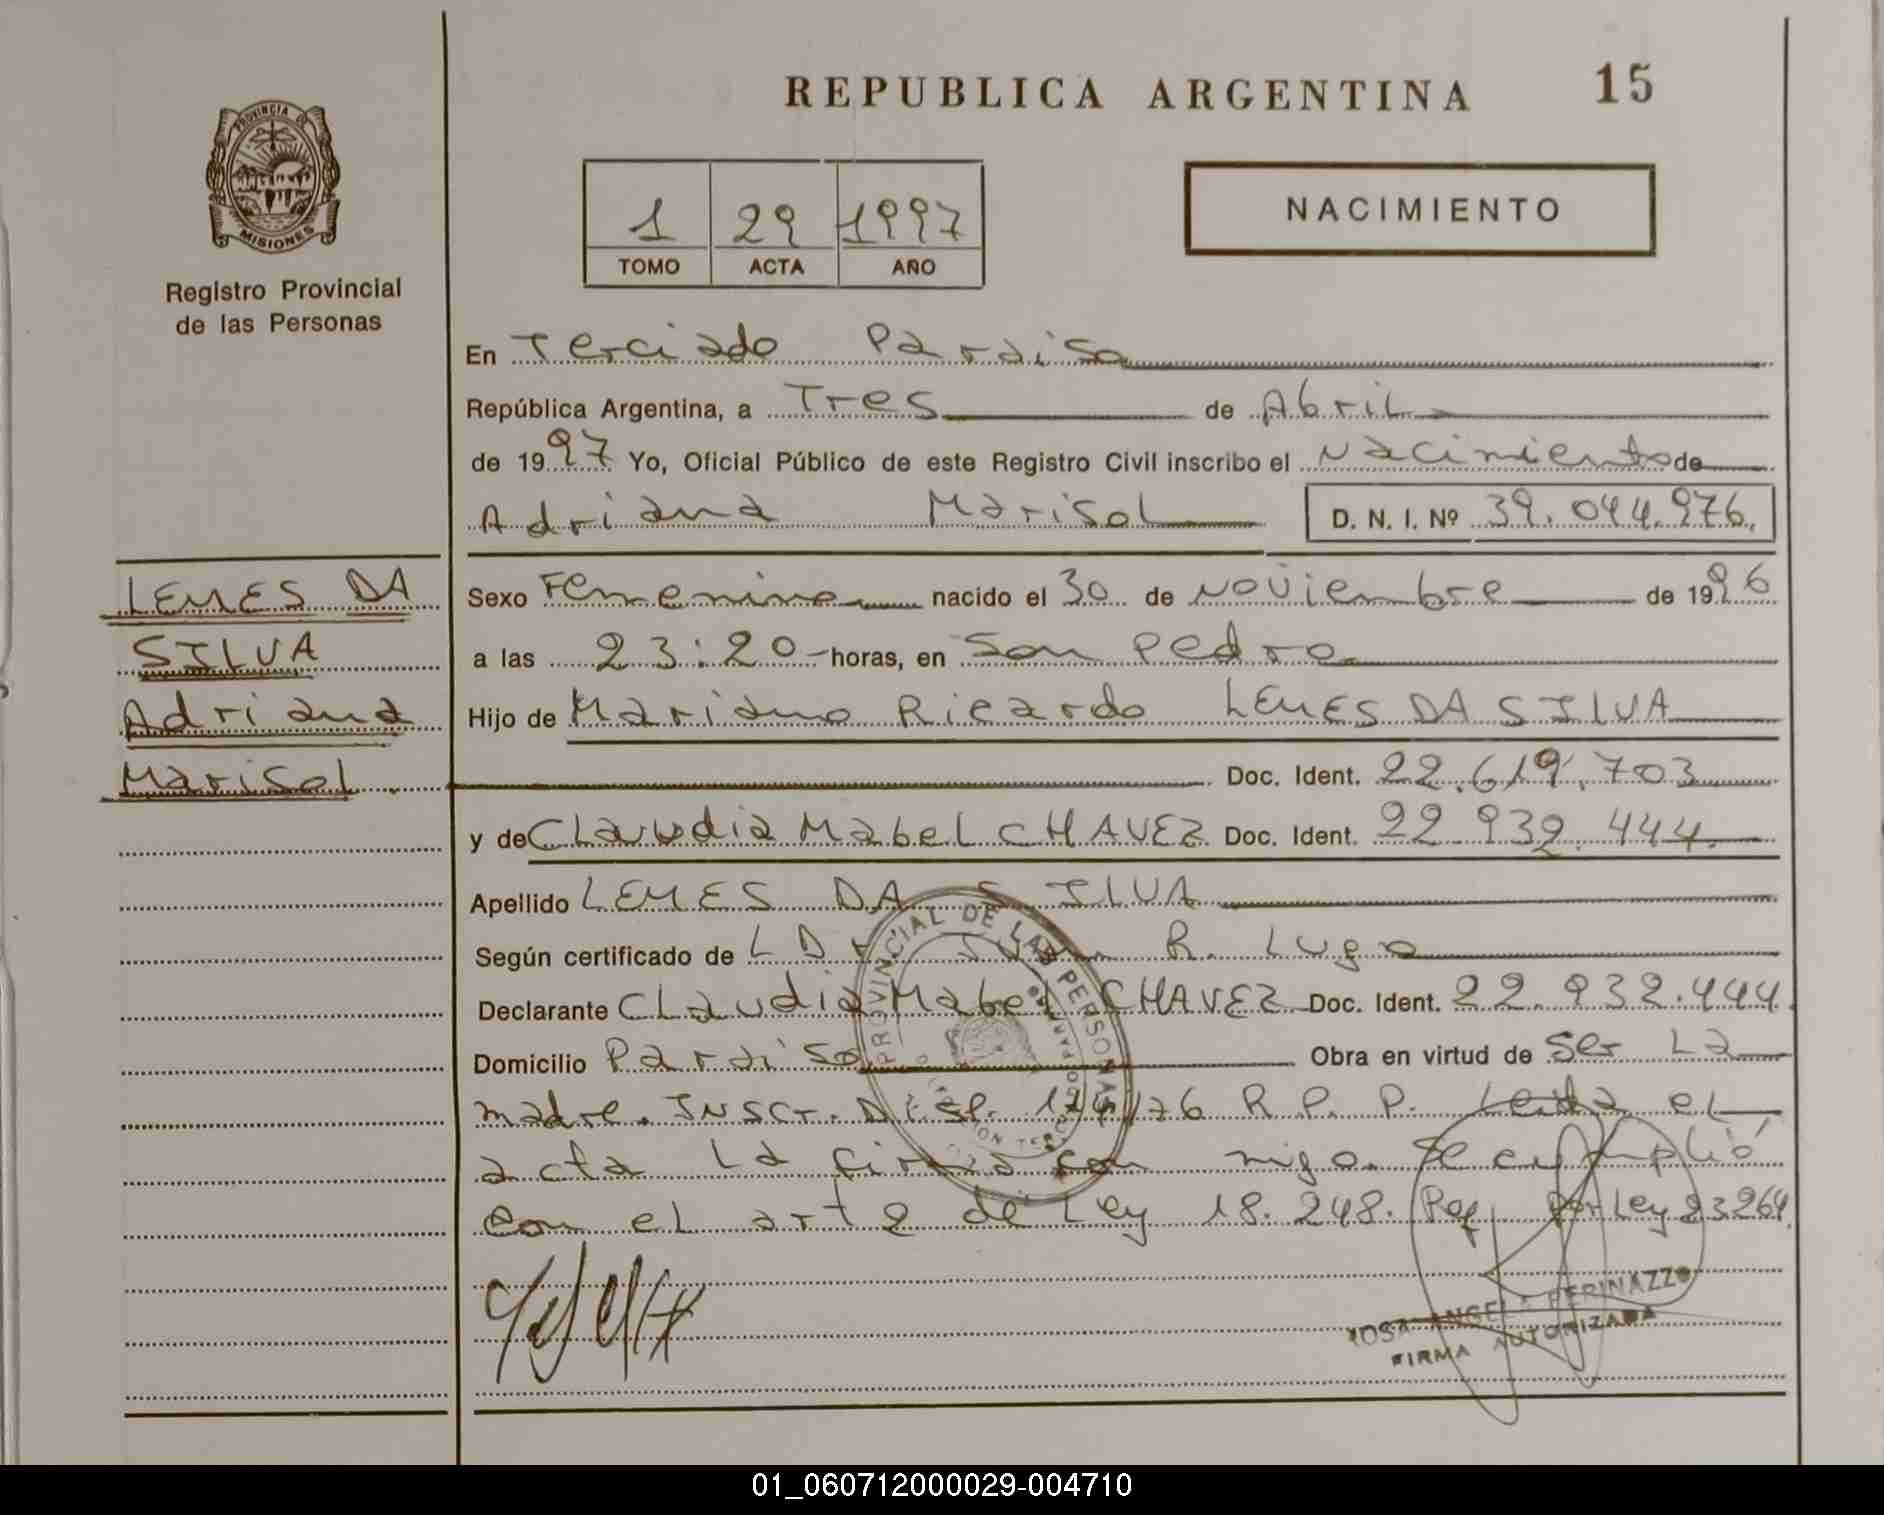 REPUBLICA ARGENTINA 15
PROVINCIA DE
MISIONES
Registro Provincial
de las Personas
1 29 1997
TOMO ACTA AÑO
NACIMIENTO
En Terciado Paraiso
República Argentina, a Tres de Abril
de 1997 Yo, Oficial Público de este Registro Civil inscribo el Nacimiento de
Adriana Marisol D. N. I. Nº 39.044.976.
LEMES DA
SILVA
Adriana
Marisol
Sexo Femenino nacido el 30 de Noviembre de 1996
a las 23:20 horas, en San Pedro
Hijo de Mariano Ricardo LEMES DA SILVA
Doc. Ident. 22.619.703
y de Claudia Mabel CHAVEZ Doc. Ident. 22.932.444.
Apellido LEMES DA SILVA
Según certificado de R. Lugo
Declarante Claudia Mabel CHAVEZ Doc. Ident. 22.932.444.
Domicilio Paraiso Obra en virtud de Ser La
madre. Inscr. Disp. 174/76 R.P.P. Leida el
acta La firma con migo. Se cumplió
con el art 2 de Ley 18.248. por Ley 23264.
PROVINCIAL DE LAS PERSONAS
ROSA ANGELA PERINAZZO
FIRMA AUTORIZADA
01_060712000029-004710